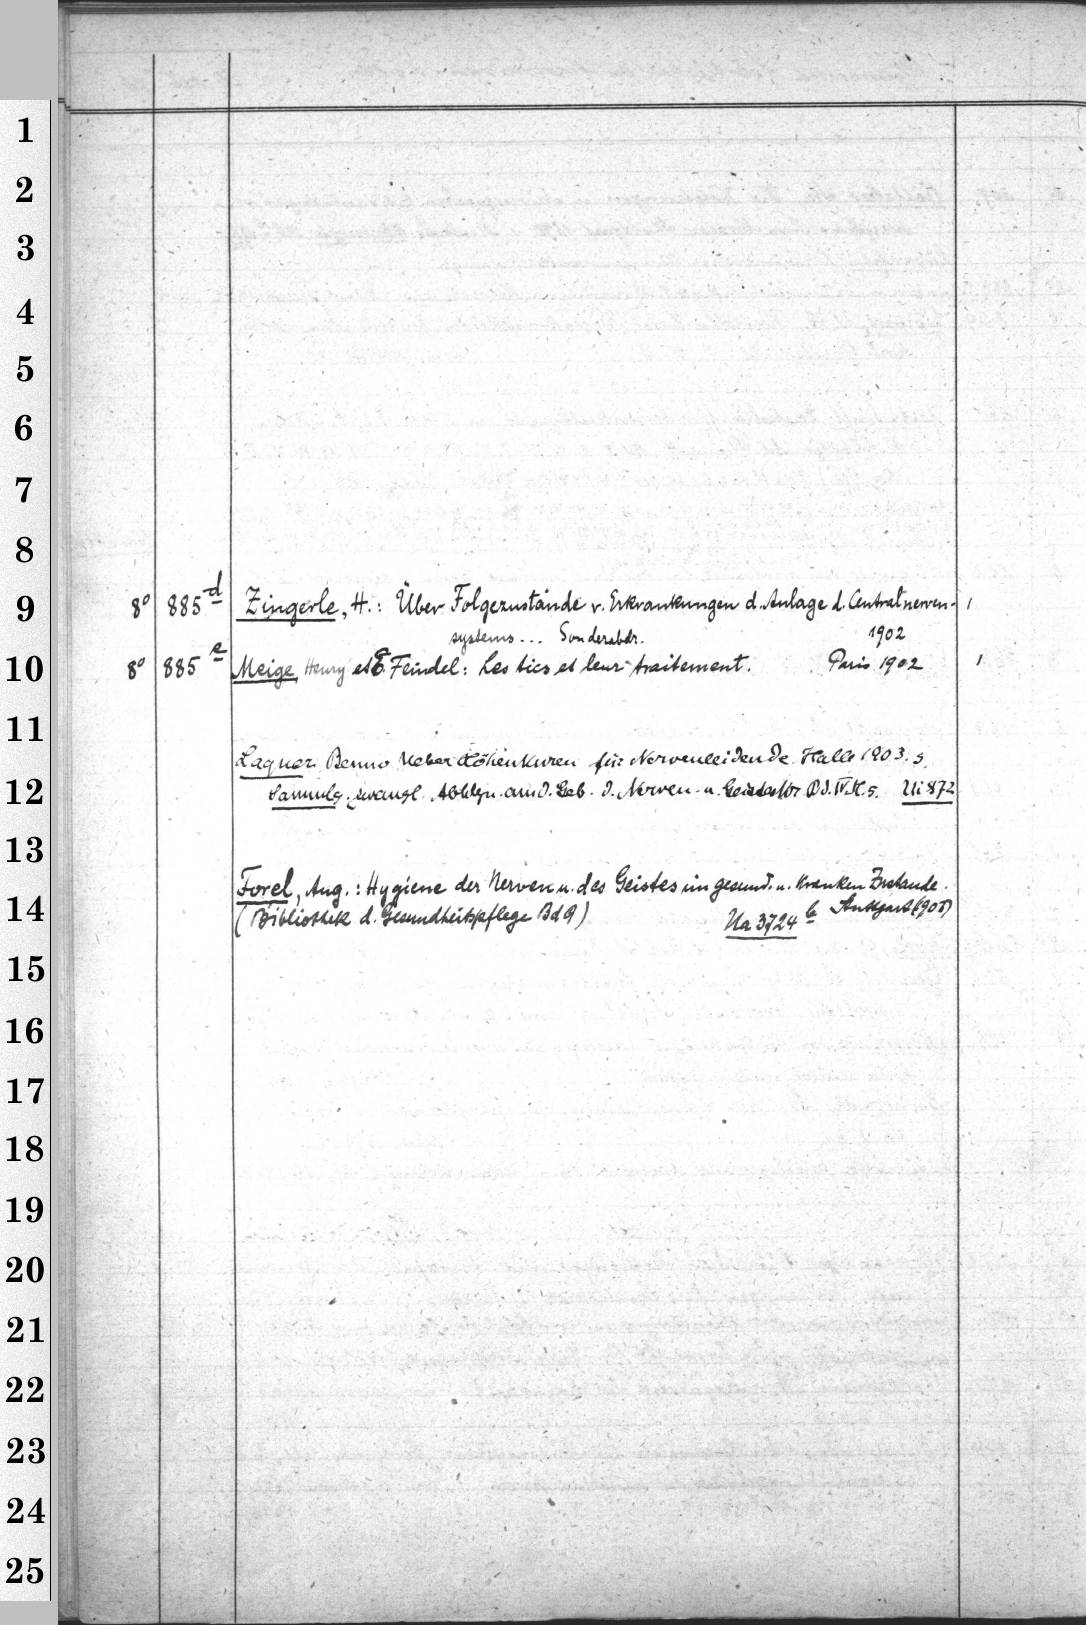 1
2
3
4
5
6
7
8
9
8° 885 d Zingerle, H.: Über Folgezustände v. Erkrankungen d. Anlage d. Centralnerven- 1
systems... Sonderabdr. 1902
10
8° 885 e Meige, Henry et E. Feindel: Les tics et leur traitement. Paris 1902 1
11
Laquer Benno Ueber Höhenkuren für Nervenleidende. Halle 1903. 5.
12
Sammlg. zwangl. Abhlgn. aus d. Geb. d. Nerven- u. Bd. IV. H. 5. Ui 872
13
Forel, Aug.: Hygiene der Nerven u. des Geistes im gesund. u. kranken Zustande.
14
(Bibliothek d. Gesundheitspflege Bd 9) Ua 3724 b Stuttgart (905)
15
16
17
18
19
20
21
22
23
24
25